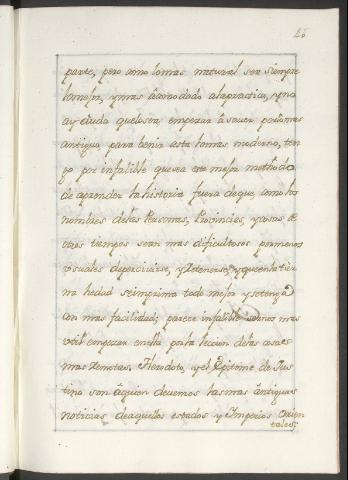 26
parte, pero como lo mas natural sea siempre
lo mejor, y mas âcomodado ala practica, y no
ay duda que lo sea empezar â saver por lo mas
antiguo para benir esta lo mas moderno, ten
go por infalible que sea este mejor methodo
de aprender la historia fuera de que, como los
nombres delas Personas, Provincias, y cosas de
otros tiempos sean mas dificultosos por menos
usuales de percivirse, y retenerse, y que en la tier
na hedad se imprima todo mejor y se tenga
con mas facilidad; parece infalible ser mas
util empezar en ella por la leccion delas cosas
mas remotas. Herodoto, y el Epitome de Jus
tino son âquien devemos las mas ântiguas
noticias de aquellos estados y Imperios Orien
tales;